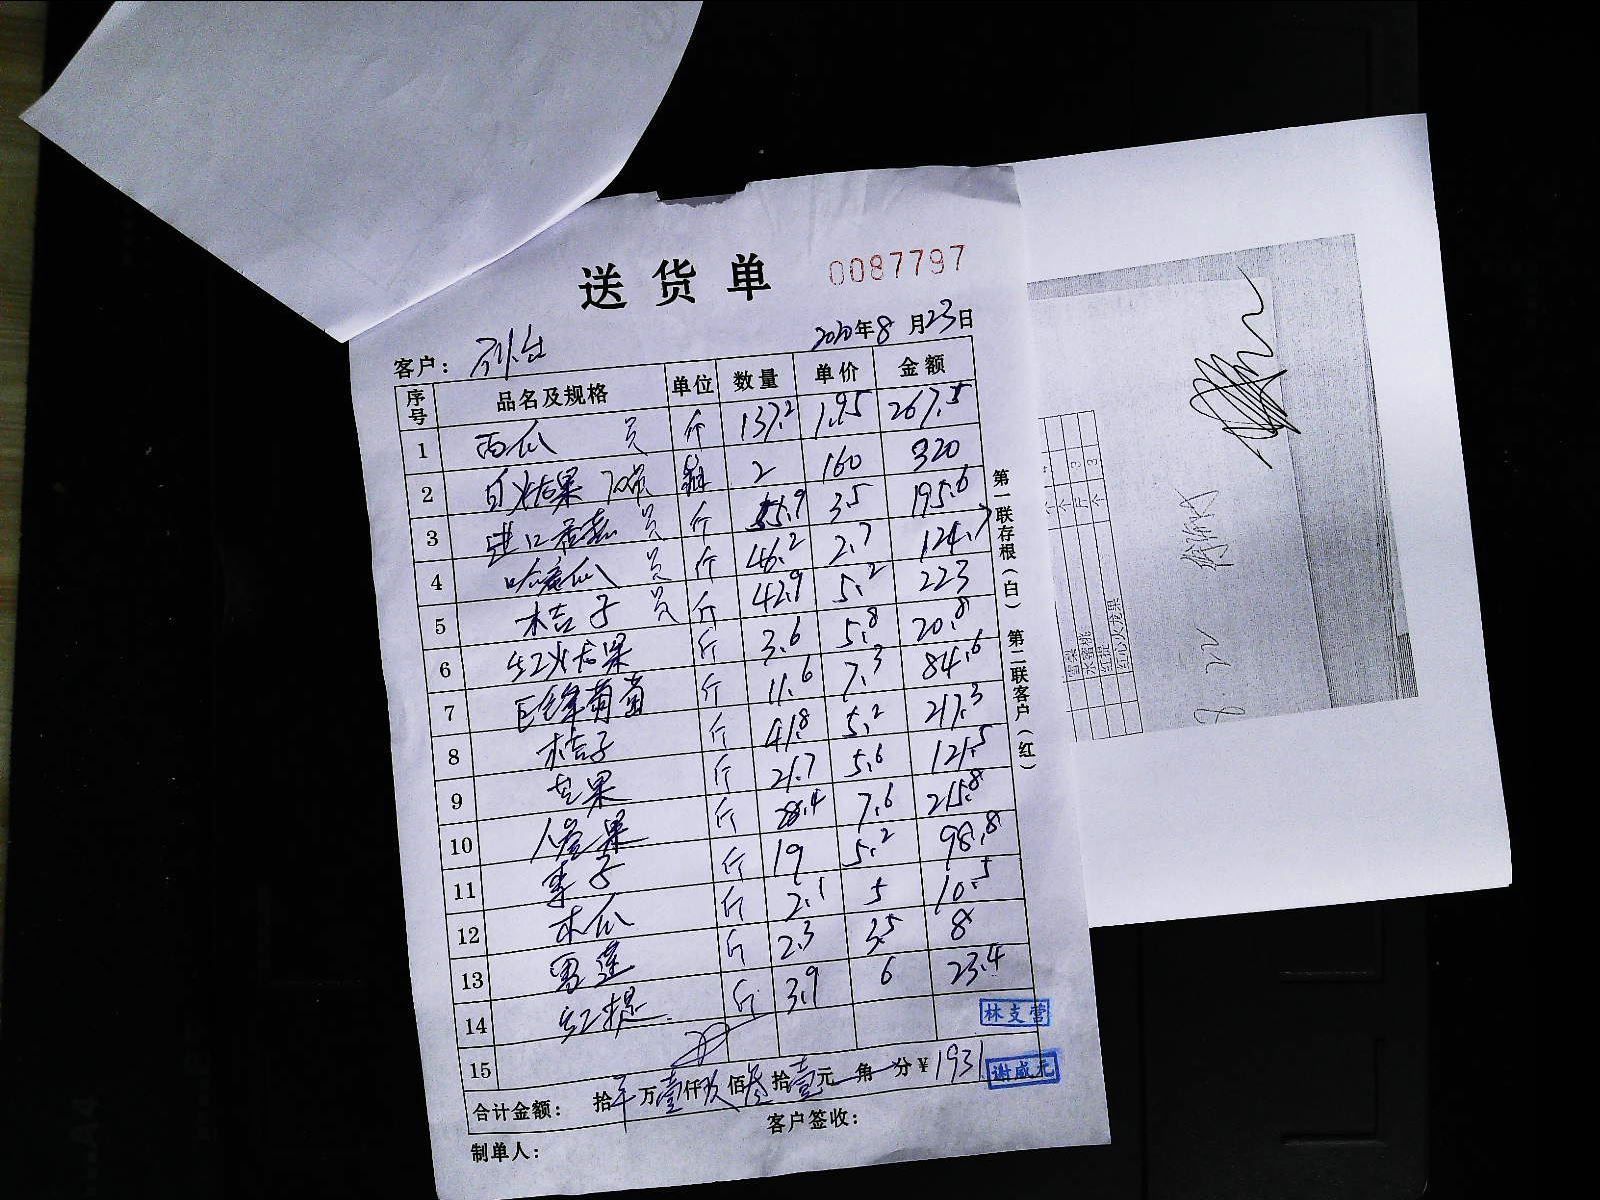 送货单 0087797
2020年8月23日
客户：
序号 品名及规格 单位 数量 单价 金额
1 西瓜 斤 137.2 1.95 267.5
2 红火龙果 2 160 320
3 进口香蕉 斤 55.9 3.5 195.6
4 哈密瓜 斤 46.2 2.7 124.7
5 桔子 斤 42.9 5.2 223
6 红火龙果 斤 3.6 5.8 20.8
7 巨峰葡萄 斤 11.6 7.3 84.6
8 桔子 斤 41.8 5.2 217.3
9 芒果 斤 21.7 5.6 121.5
10 人参果 斤 28.4 7.6 215.8
11 李子 斤 19 5.2 98.8
12 木瓜 斤 2.1 5 10.5
13 斤 2.3 3.5 8
14 红提 斤 3.9 6 23.4
15
合计金额： 拾 万壹仟玖佰叁拾壹元 角 分 ¥1931
制单人： 客户签收：
第一联存根（白） 第二联客户（红）
林支营
谢威元
雪梨
水蜜桃
红提
红心火龙果
个
个 3
斤 3
个
8.22